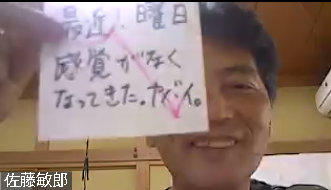 最近、曜日
感覚がなく
なってきた。ヤバイ。
佐藤敏郎